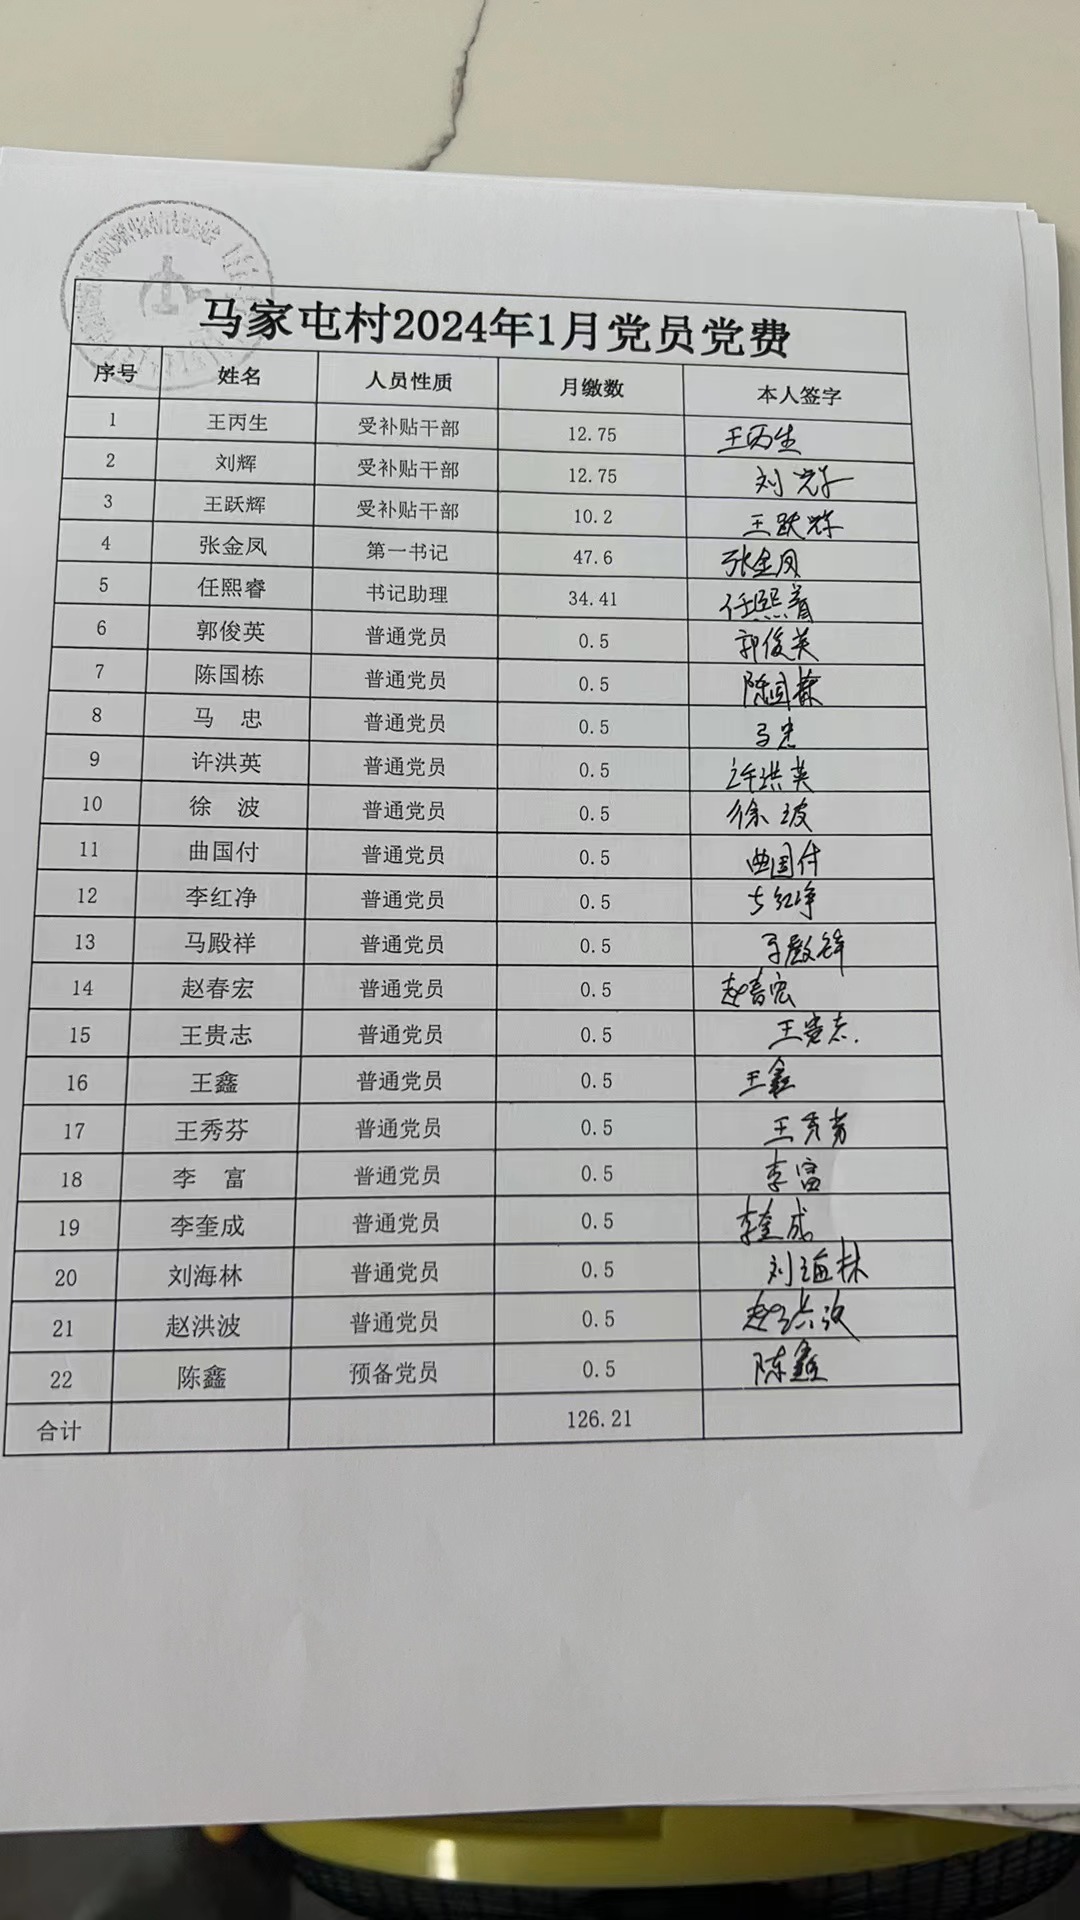 马家屯村2024年1月党员党费
序号 姓名 人员性质 月缴数 本人签字
1 王丙生 受补贴干部 12.75 王丙生
2 刘辉 受补贴干部 12.75 刘辉
3 王跃辉 受补贴干部 10.2 王跃辉
4 张金凤 第一书记 47.6 张金凤
5 任熙睿 书记助理 34.41 任熙睿
6 郭俊英 普通党员 0.5 郭俊英
7 陈国栋 普通党员 0.5 陈国栋
8 马 忠 普通党员 0.5 马忠
9 许洪英 普通党员 0.5 许洪英
10 徐 波 普通党员 0.5 徐波
11 曲国付 普通党员 0.5 曲国付
12 李红净 普通党员 0.5 李红净
13 马殿祥 普通党员 0.5 马殿祥
14 赵春宏 普通党员 0.5 赵春宏
15 王贵志 普通党员 0.5 王贵志.
16 王鑫 普通党员 0.5 王鑫
17 王秀芬 普通党员 0.5 王秀芬
18 李 富 普通党员 0.5 李富
19 李奎成 普通党员 0.5 李奎成
20 刘海林 普通党员 0.5 刘海林
21 赵洪波 普通党员 0.5 赵洪波
22 陈鑫 预备党员 0.5 陈鑫
合计 126.21